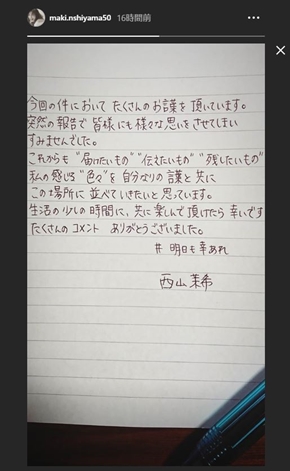 maki.nshiyama50 16時間前
今回の件において たくさんのお言葉を頂いています。
突然の報告で皆様にも様々な思いをさせてしまい
すみませんでした。
これからも "届けたいもの" "伝えたいもの" "残したいもの"
私の感じる "色々" を 自分なりの 言葉と共に
この場所に 並べていきたいと思っています。
生活の少しの時間に、共に楽しんで頂けたら幸いです
たくさんの コメント ありがとうございました。
# 明日も幸あれ
西山茉希